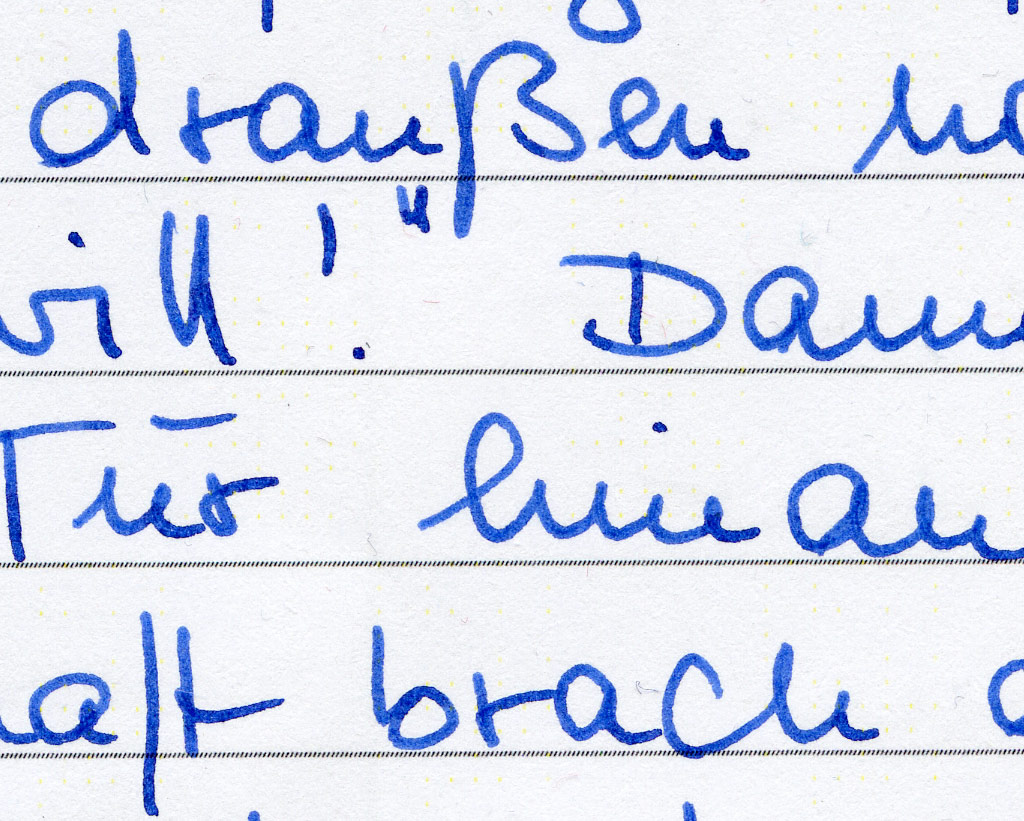 draußen
will!" Dann
Tür hinau
haft brach